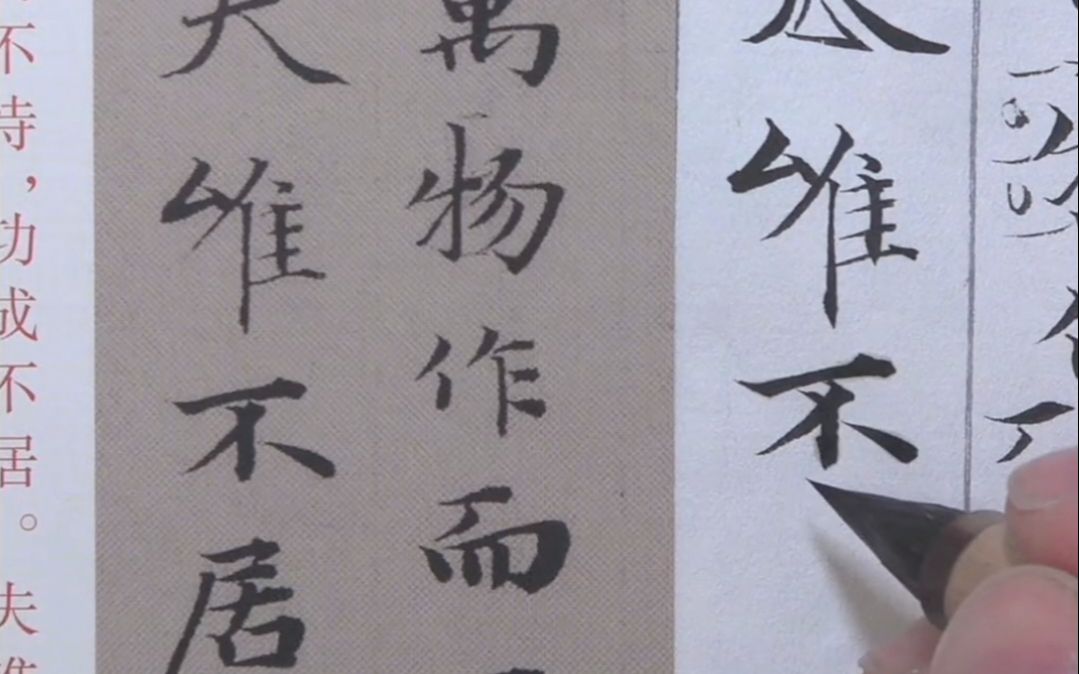 唯不
萬物作而
夫唯不居
不恃，功成不居。夫唯